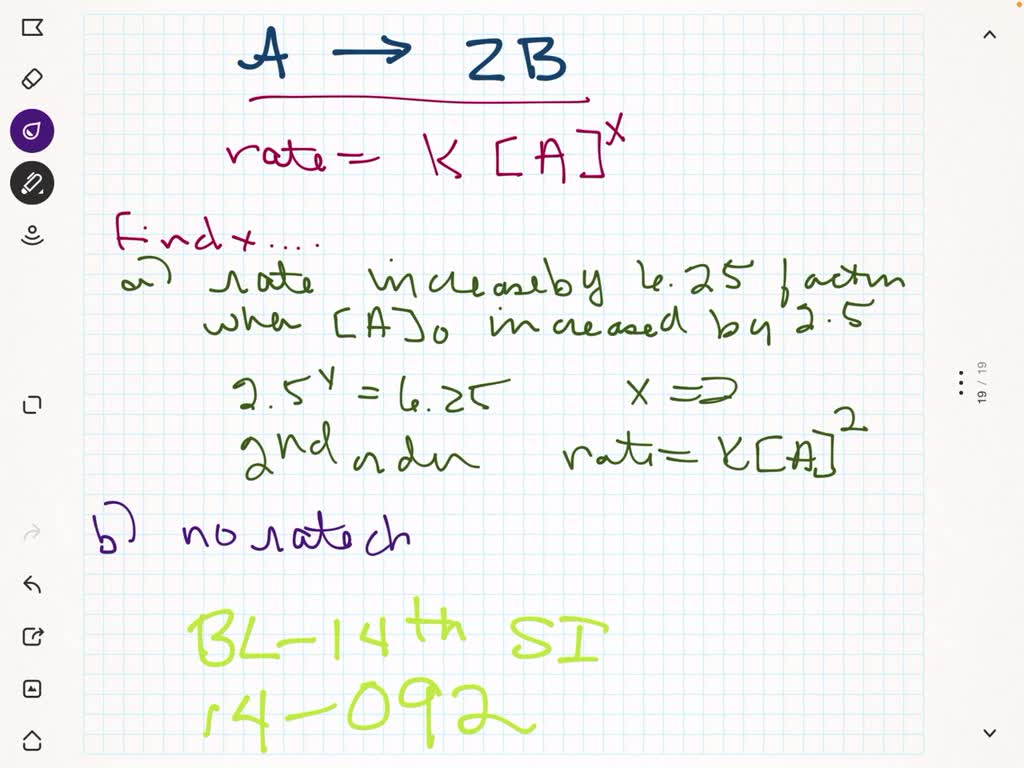 A → 2B
rate = K [A]^x
Find x....
a) rate increase by 6.25 factor
when [A]₀ increased by 2.5
2.5^x = 6.25 x = 2
2nd order rate = K[A]^2
b) no rate ch
BL-14th SI
14-092
19 / 19